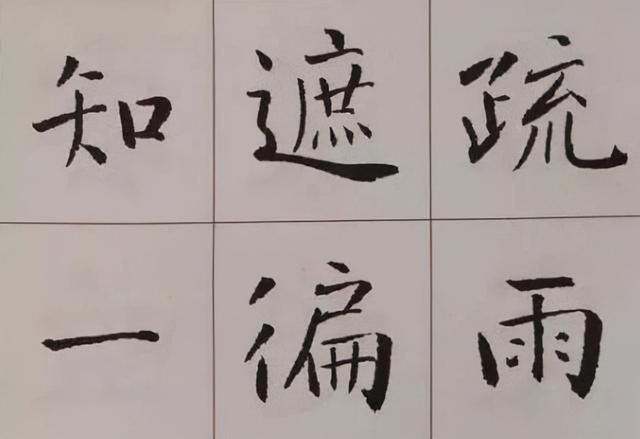 知遮疏
一徧雨